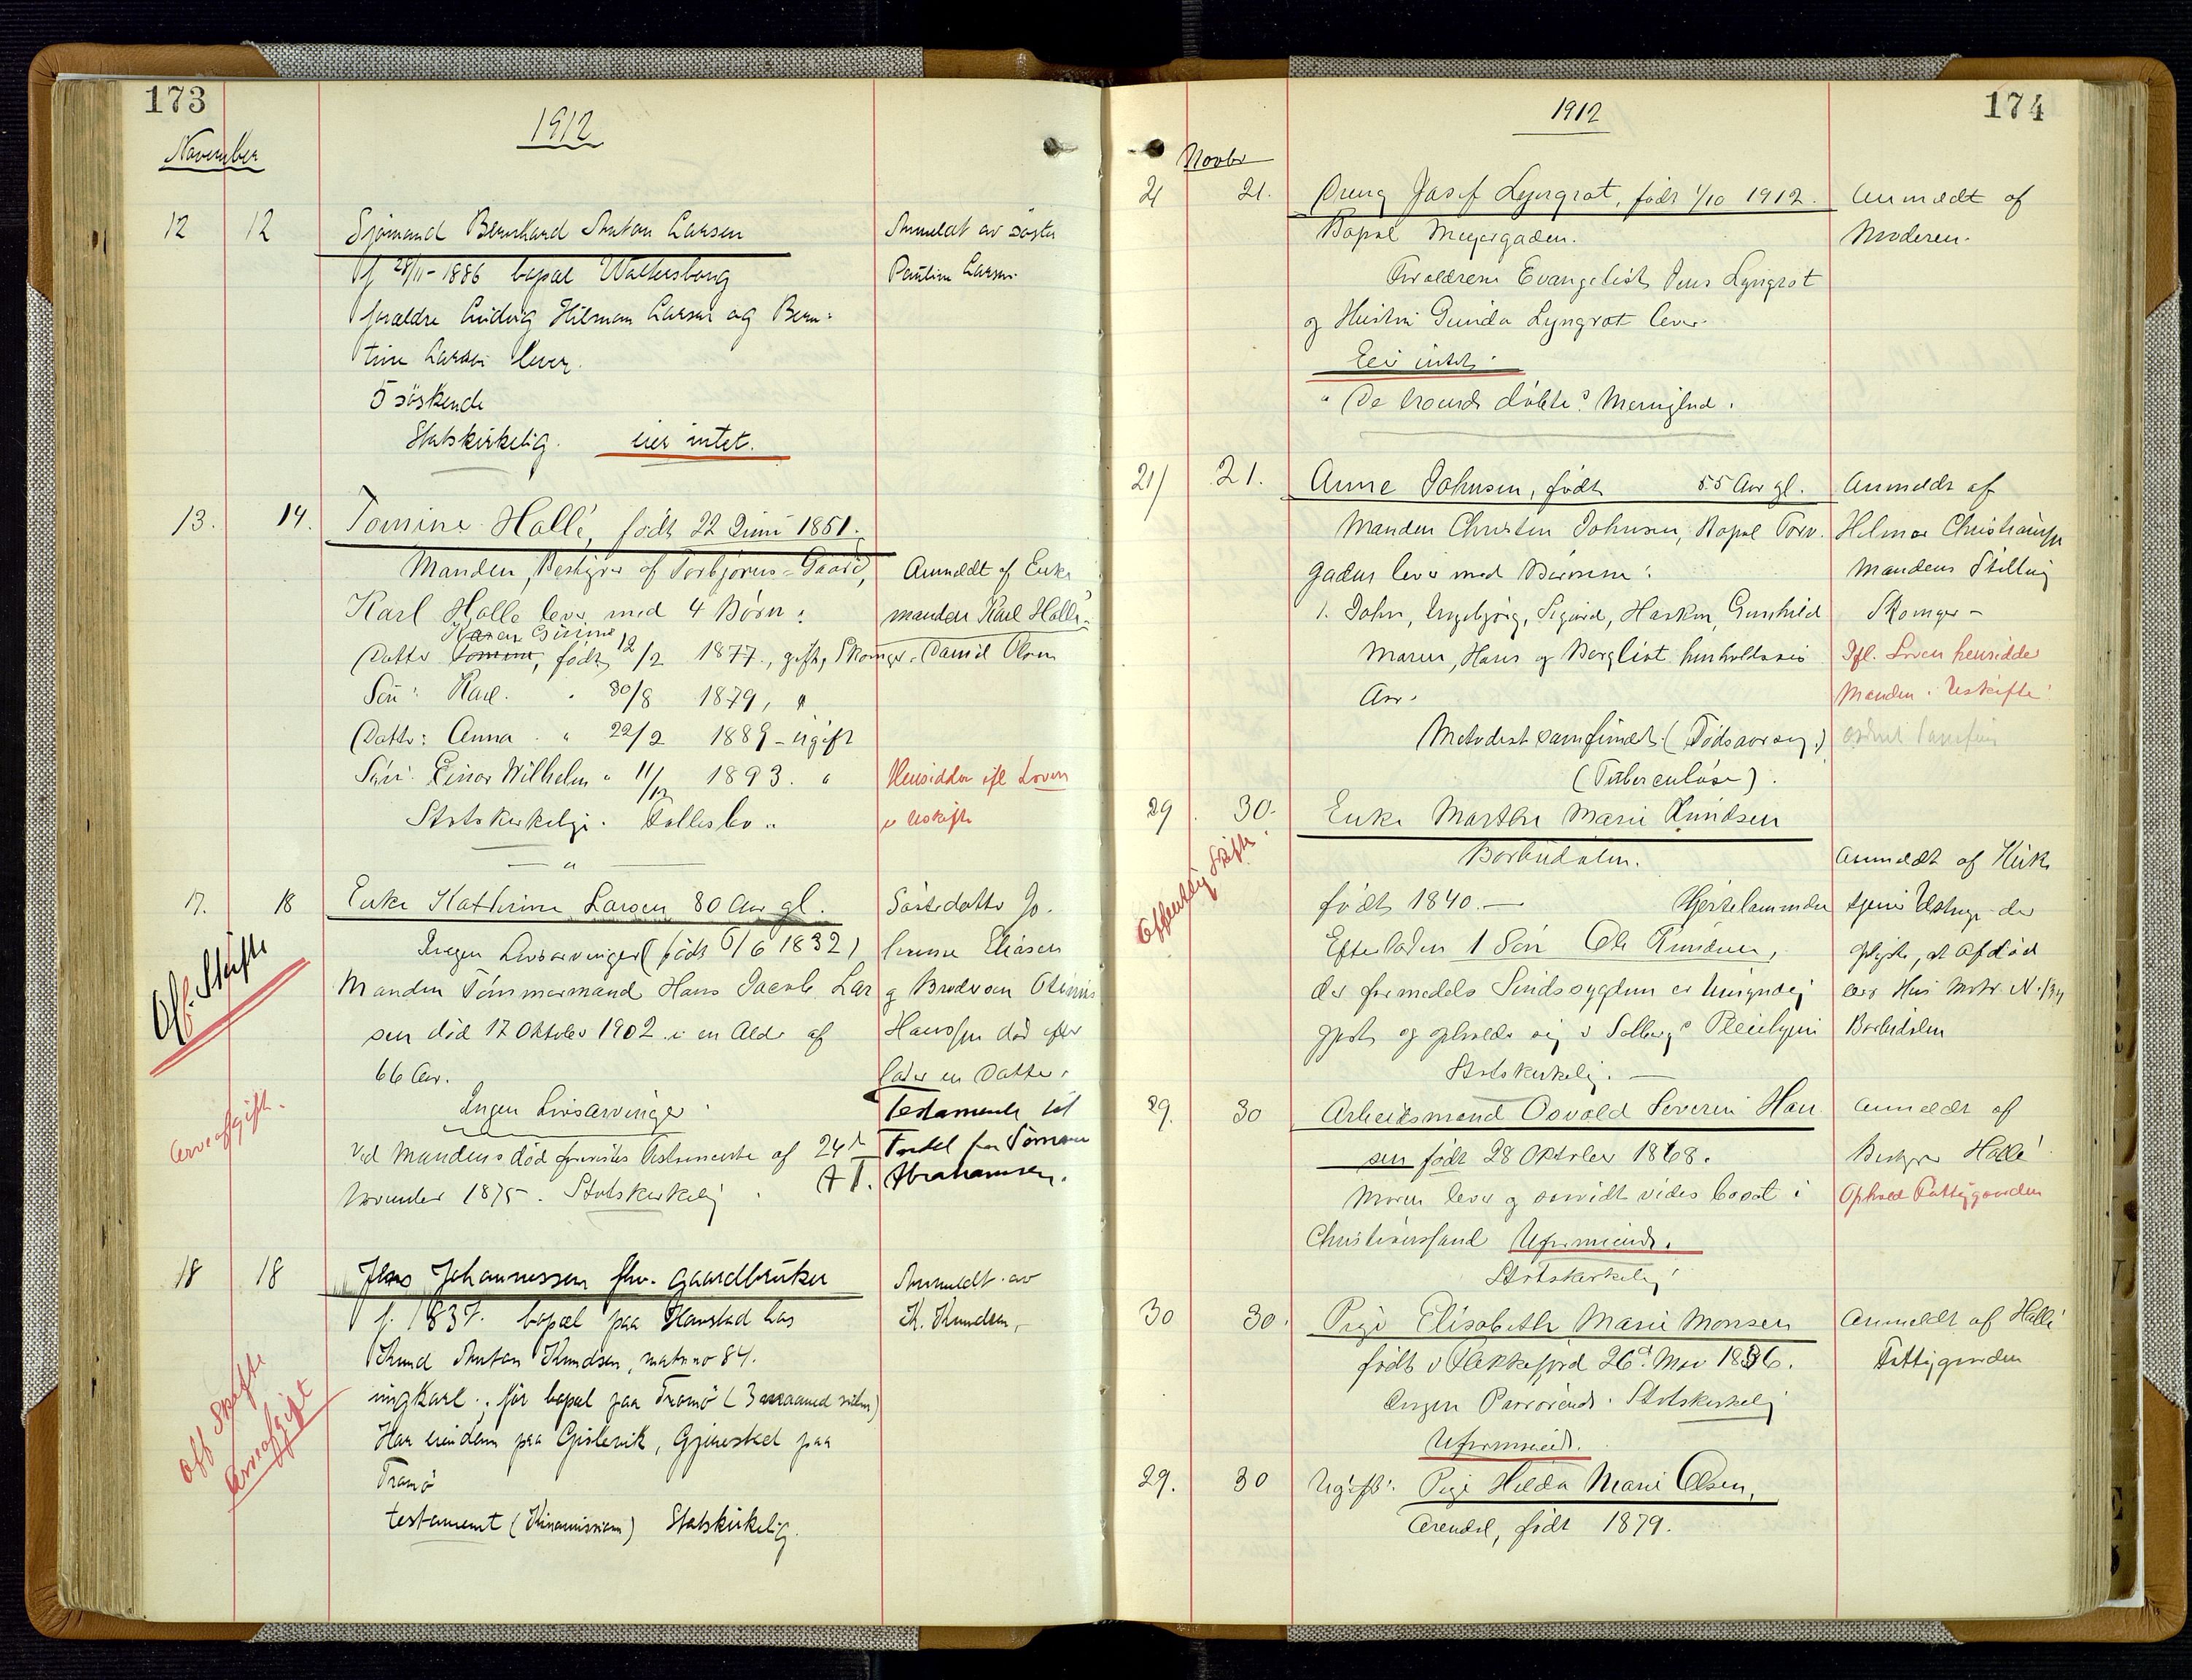 173
1912
November
12 12 Sjømand Bernhard Anton Larsen Anmeldt av søster
f 28/11-1886 bopæl Waltersborg Pauline Larsen.
foræeldre Ludvig Hilman Larsen og Bern-
tine Larsen lever.
5 søskende
Statskirkelig. eier intet.
13. 14. Tomine Halle, født 22 Juni 1851.
Manden, Bestyrer af Torbjørns-Gaard, Anmeldt af Enke
Karl Halle lever med 4 Børn: manden Karl Halle.
Karen Girine
Datter Tomine, født 12/2 1877., gift, Skomger. Daniel Olsen
Søn: Karl. " 30/8 1879, "
Datter: Anna. " 22/2 1889 - ugift
Søn: Einar Wilhelm " 11/12 1893. " Hensidder ifl Loven
Statskirkelig. Fallesbo " i Uskifte
"
17. 18 Enke Kathrine Larsen 80 Aar gl. Søsterdatter Jo-
Off. Skifte
Ingen Livsarvinger (født 6/6 1832) hanne Eliasen
Manden Tømmermand Hans Jacob Lar og Brodersøn Otinius
sen død 17 Oktober 1902 i en Alder af Hanssen død efter
66 Aar. lader en Datter.
Arveafgift.
Ingen Livsarvinger. Testamente til
Ved Mandens død forevistes Testamente af 24de Fordel for Tomine
November 1875. Statskirkelig. A T. Abrahamsen.
18 18 Jens Johannessen fhv. Gaardbruker Anmeldt av
f. 1837. bopæl paa Hanstad hos K. Knudsen,-
Knud Anton Knudsen, matr no 84.
off Skifte
Arveafgift
ungkarl. før bopæl paa Tromø (3 maaned siden)
Har eiendom paa Gislevik, Gjerestad paa
Tromø
testament () Statskirkelig.
174
1912
Novbr
21 21. Dreng Josef Lyngrot, født 1/10 1912. Anmeldt af
Bopæl Meyergaden. Moderen.
Foraeldrene Evangelist Jens Lyngrot
og Hustru Gunda Lyngrot lever.
Eier intet.
" De troende døbte" Menighed.
21/ 21. Anne Johnsen, født 55 Aar gl. Anmeldt af
Manden Christen Johnsen, Bopæl Torv- Helmar Christiansen
gaden lever med Børnene: Mandens Stilling
1. John, Ingebjørg, Sigurd, Haakon, Gunhild Skomger -
Maren, Hans og Bergliot henholdsvis Ifl. Loven hensidder
Aar. Manden i Uskifte
Metodistsamfundet. (Fødsaarsag.)
(Tuberculøse).
29 30. Enke Marthe Marie Knudsen
Offentlig Skifte.
Barbudalen. Anmeldt af Kirke
født 1840.- Hjertelammelse tjener Ustrup der
Efterlader 1 Søn Ole Knudsen, oplyste, at afdød
der formedels Sindssygdom er umyndig eier Hus Matr. N. 139
gjort og opholder sig i Solbergs Pleiehjem Barbudalen
Statskirkelig.-
29. 30 Arbeidsmand Osvald Severin Han Anmeldt af
sen født 28 Oktober 1868. Bestyrer Halle
Moren lever og saavidt vides bosat i Ophold Fattiggaarden
Christianssand Uformuende.
Statskirkelig
30 30. Pige Elisabeth Marie Monsen Anmeldt af Halle
født i Flekkefjord 26de Mai 1836. Fattiggaarden
Ingen Paarørende. Statskirkelig
Uformuende.
29. 30 Ugift: Pige Hilda Marie Olsen,
Arendal, født 1879.